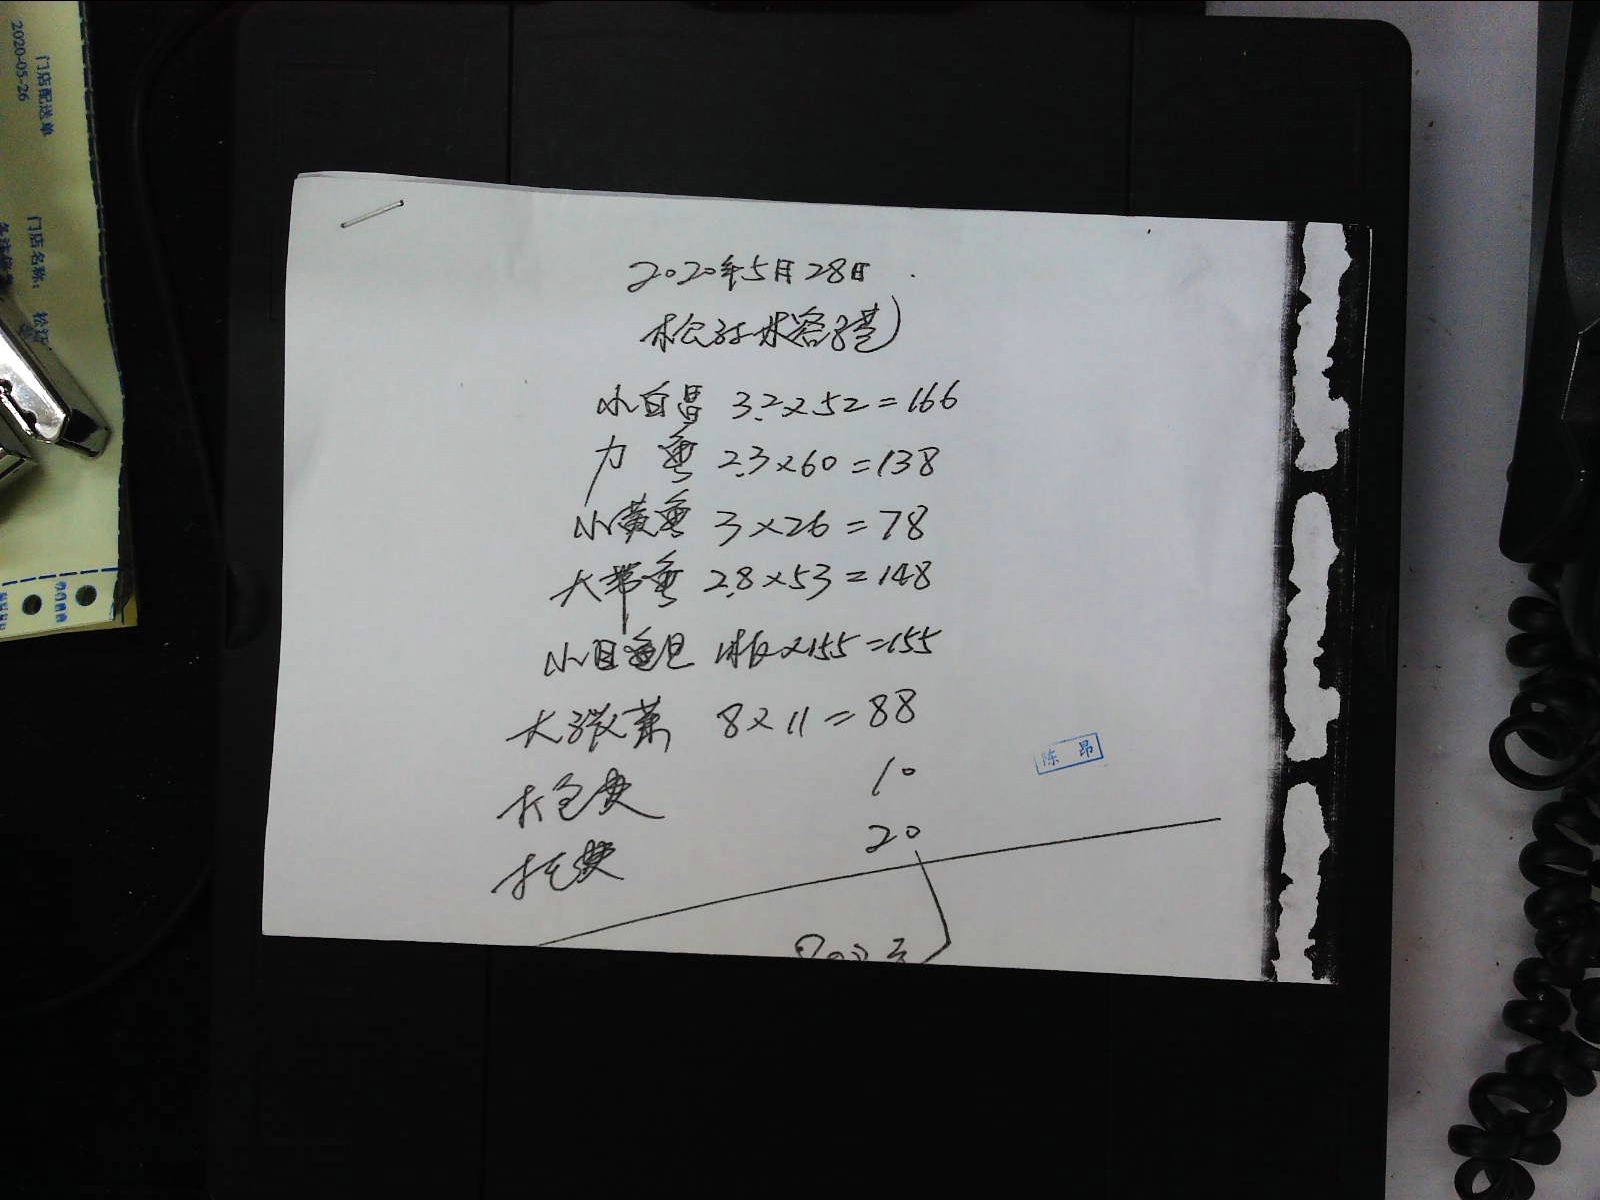 2020年5月28日
小白昌 3.2×52=166
力鱼 2.3×60=138
小黄鱼 3×26=78
大带鱼 2.8×53=148
小目鱼旦 1板×155=155
大 8×11=88
打包费 10
托费 20
陈昂
门店配送单
2020-05-26
门店名称: